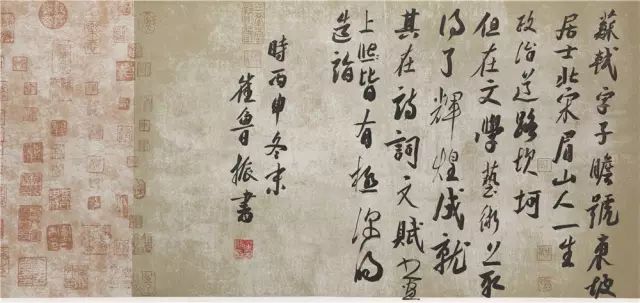 蘇軾字子瞻號東坡
居士北宋眉山人一生
政治道路坎坷
但在文學藝術上取
得了輝煌成就
其在詩詞文賦書畫
上皆有極深的
造詣
時丙申冬末
崔魯振書